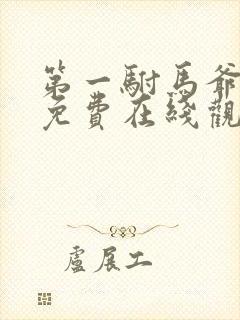 第一駙馬爺
免費在綫觀
盧展工